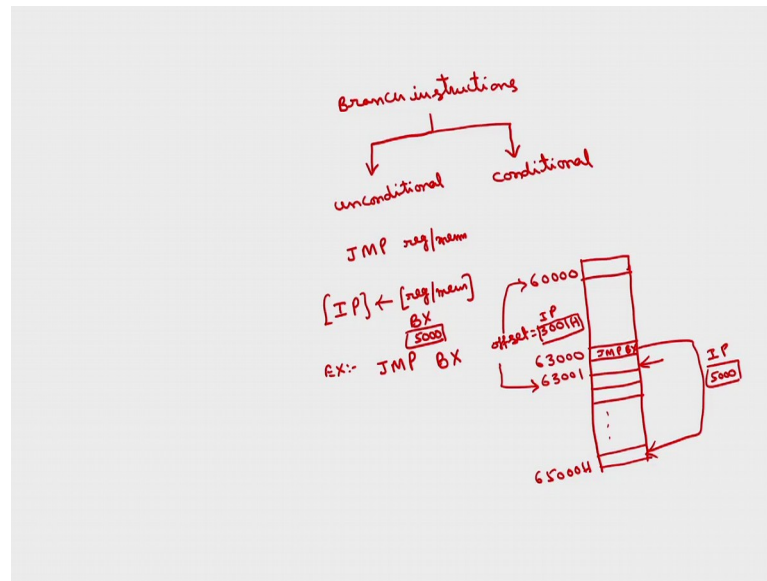 Branch instructions
unconditional
conditional
JMP reg/mem
[IP] ← [reg/mem]
BX
5000
EX:- JMP BX
60000
IP
offset = 3001H
63000 JMP BX
63001
IP
5000
65000H